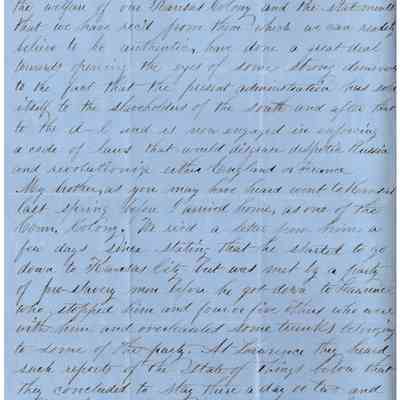 the welfare of our Kansas Colony and the statements
that we have rec'd from them which we can readily
believe to be authentic, have done a great deal
towards opening the eyes of some strong democrats
to the fact that the present administration has sold
itself to the slaveholders of the south and after that
to the d-l and is now engaged in enforcing
a code of laws that would disgrace despotic Russia
and revolutionize either England or France
My brother, as you may have heard went to Kansas
last spring before I arrived home, as one of the
Conn. Colony. We rec'd a letter from him a
few days since stating that he started to go
down to Kansas City but was met by a party
of pro-slavery men before he got down to Lawrence
who stopped him and four or five others who were
with him and overhauled some trunks belonging
to some of the party. At Lawrence they heard
such reports of the State of things below that
they concluded to stay there a day or two and